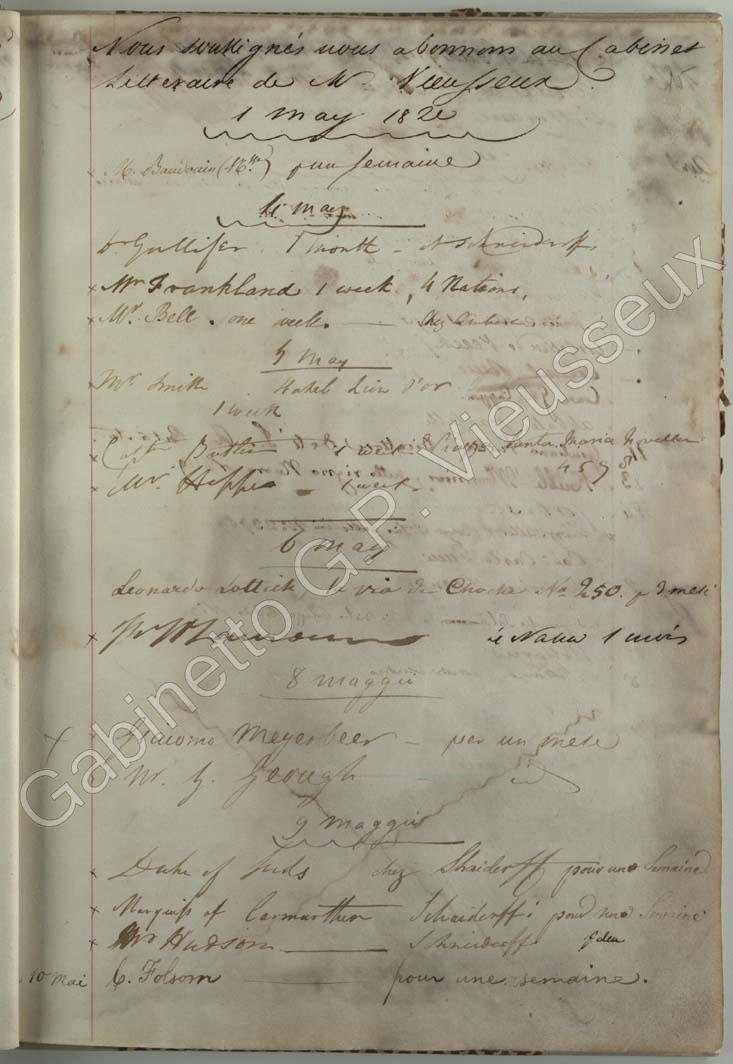 Nous soussignés nous abonnons au Cabinet
Litteraire de Mr Vieusseux.
1 may 182
M. Baudouin p un semaine
4 may
Dr Gullifer 1 month - Schneiderff
Mr Frankland 1 week, 4 Nations,
Mr Bell. one week. — Chez
5 may
Mr Smith Hotel Lion d'or
1 week
Capt Butler 1 week Piazza Santa Maria Novella
457
Mr Hippe 1 week
6 may
Leonardo via de No 250. p 3 mesi
1 mois
8 maggio
Giacomo Meyerbeer - per un mese
Mr. G. Geough
9 maggio
Duke of Leeds chez Shaiderff pour une Semaine
Marquiss of Carmarthen Schaiderffs pour une Semaine
Mr Hudson — Schneiderff
10 Mai C. Folsom — pour une semaine.
Gabinetto G.P. Vieusseux